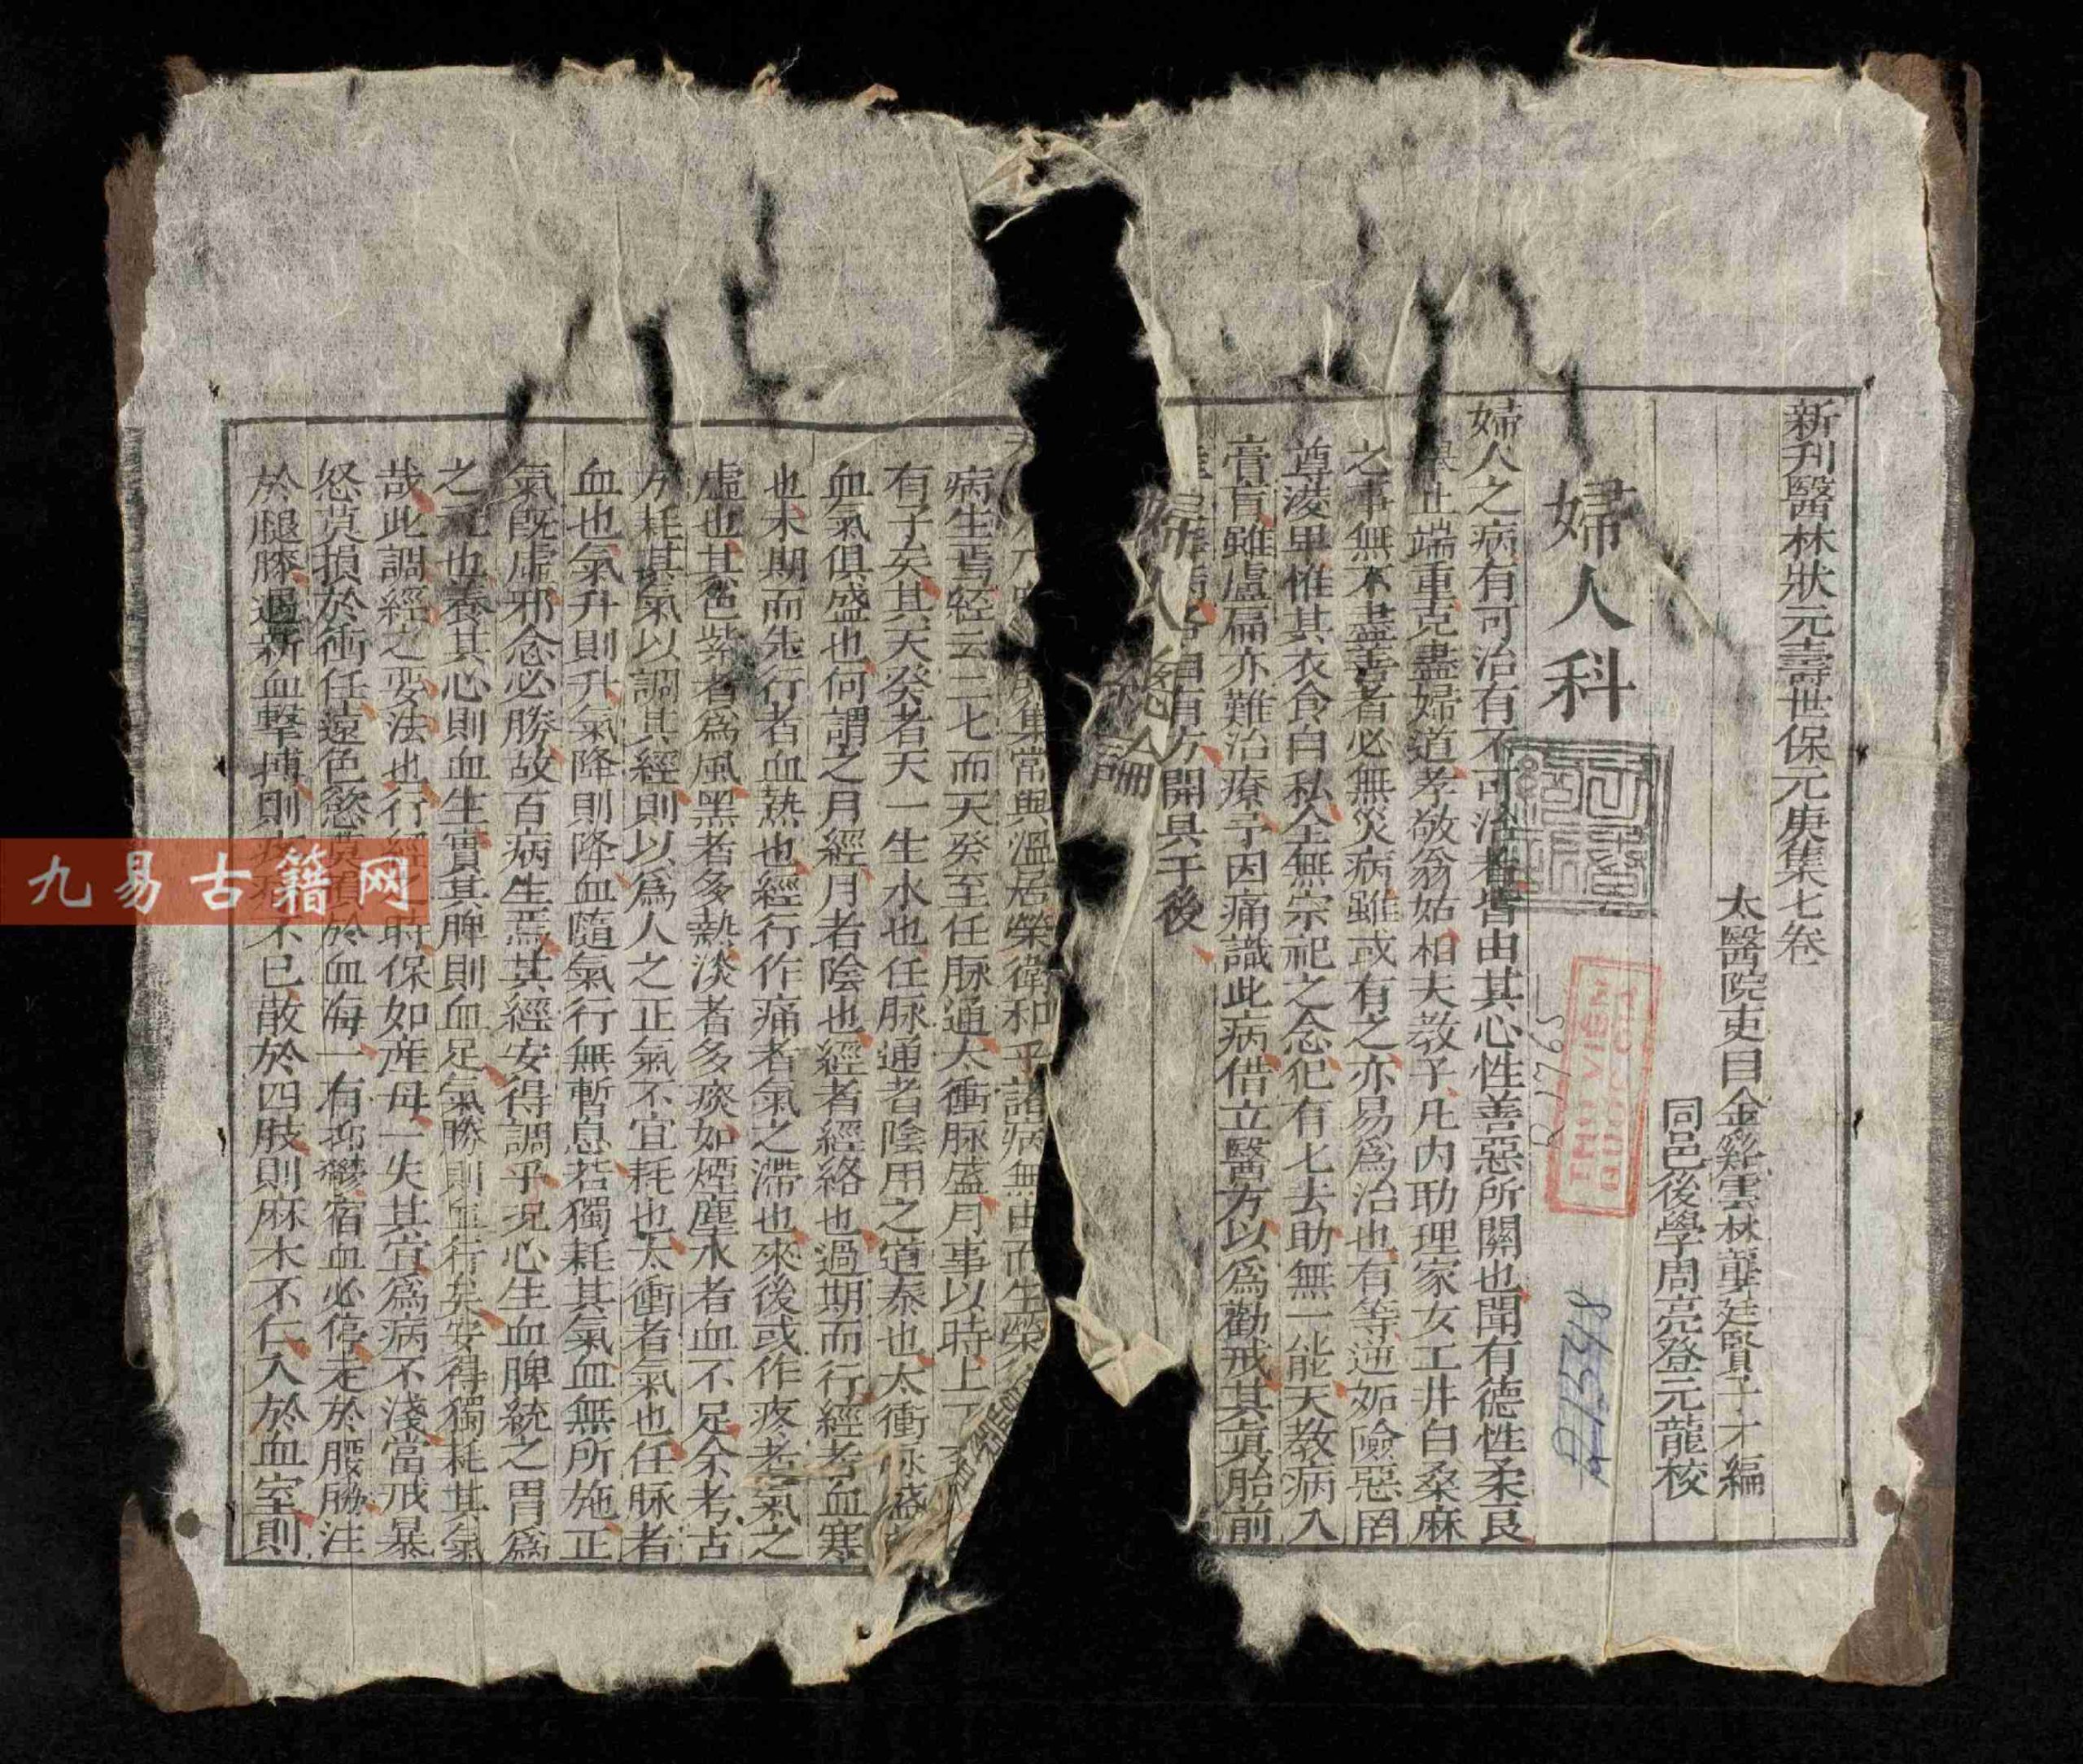 新刋醫林狀元壽世保元庚集七卷
太醫院吏目金谿雲林龔廷賢子才編
同邑後學周亮登元龍校
婦人科
婦人之病有可治有不可治者皆由其心性善惡所關也聞有德性柔良
止端重克盡婦道孝敬翁姑相夫教子凡内助理家女工井臼桑麻
之事無不盡善者必無災病雖或有之亦易爲治也有等逆妬險惡罔
尊淩卑惟其衣食自私全無宗祀之念犯有七去助無一能天教病入
膏肓雖盧扁亦難治療予因痛識此病借立醫方以爲勸戒其眞胎前
自有方開具于後
婦人總論
集常與溫居榮衛和平諸病無由而生榮
病生焉經云二七而天癸至任脉通太衝脉盛月事以時上
有子矣其天癸者天一生水也任脉通者陰用之道泰也太衝脉盛
血氣俱盛也何謂之月經月者陰也經者經絡也過期而行經者血寒
也未期而先行者血熱也經行作痛者氣之滯也來後或作疼者氣之
虛也其色紫者爲風黑者多熱淡者多痰如煙塵水者血不足余考古
方耗其氣以調其經則以爲人之正氣不宜耗也太衝者氣也任脉者
血也氣升則升氣降則降血隨氣行無暫息若獨耗其氣血無所施正
氣旣虛邪念必勝故百病生焉其經安得調乎况心生血脾統之胃爲
之元也養其心則血生實其脾則血足氣勝則血行矣安得獨耗其氣
哉此調經之要法也行經之時保如産母一失其宜爲病不淺當戒暴
怒莫損於衝任遠色慾莫損於血海一有抑鬱宿血必停走於腰脇注
於腿膝遇新血擊搏則疼痛不已散於四肢則麻木不仁入於血室則
R 1765
THƯ VIỆN
九易古籍网